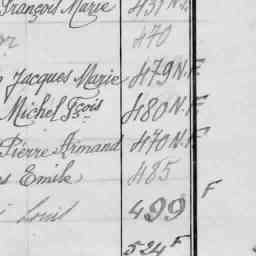 François Marie 431 N.F
470
Jacques Marie 479 N.F
Michel Fçois 480 N.F
Pierre Armand 470 N.F
Emile 485
Louis 499 F
524 F